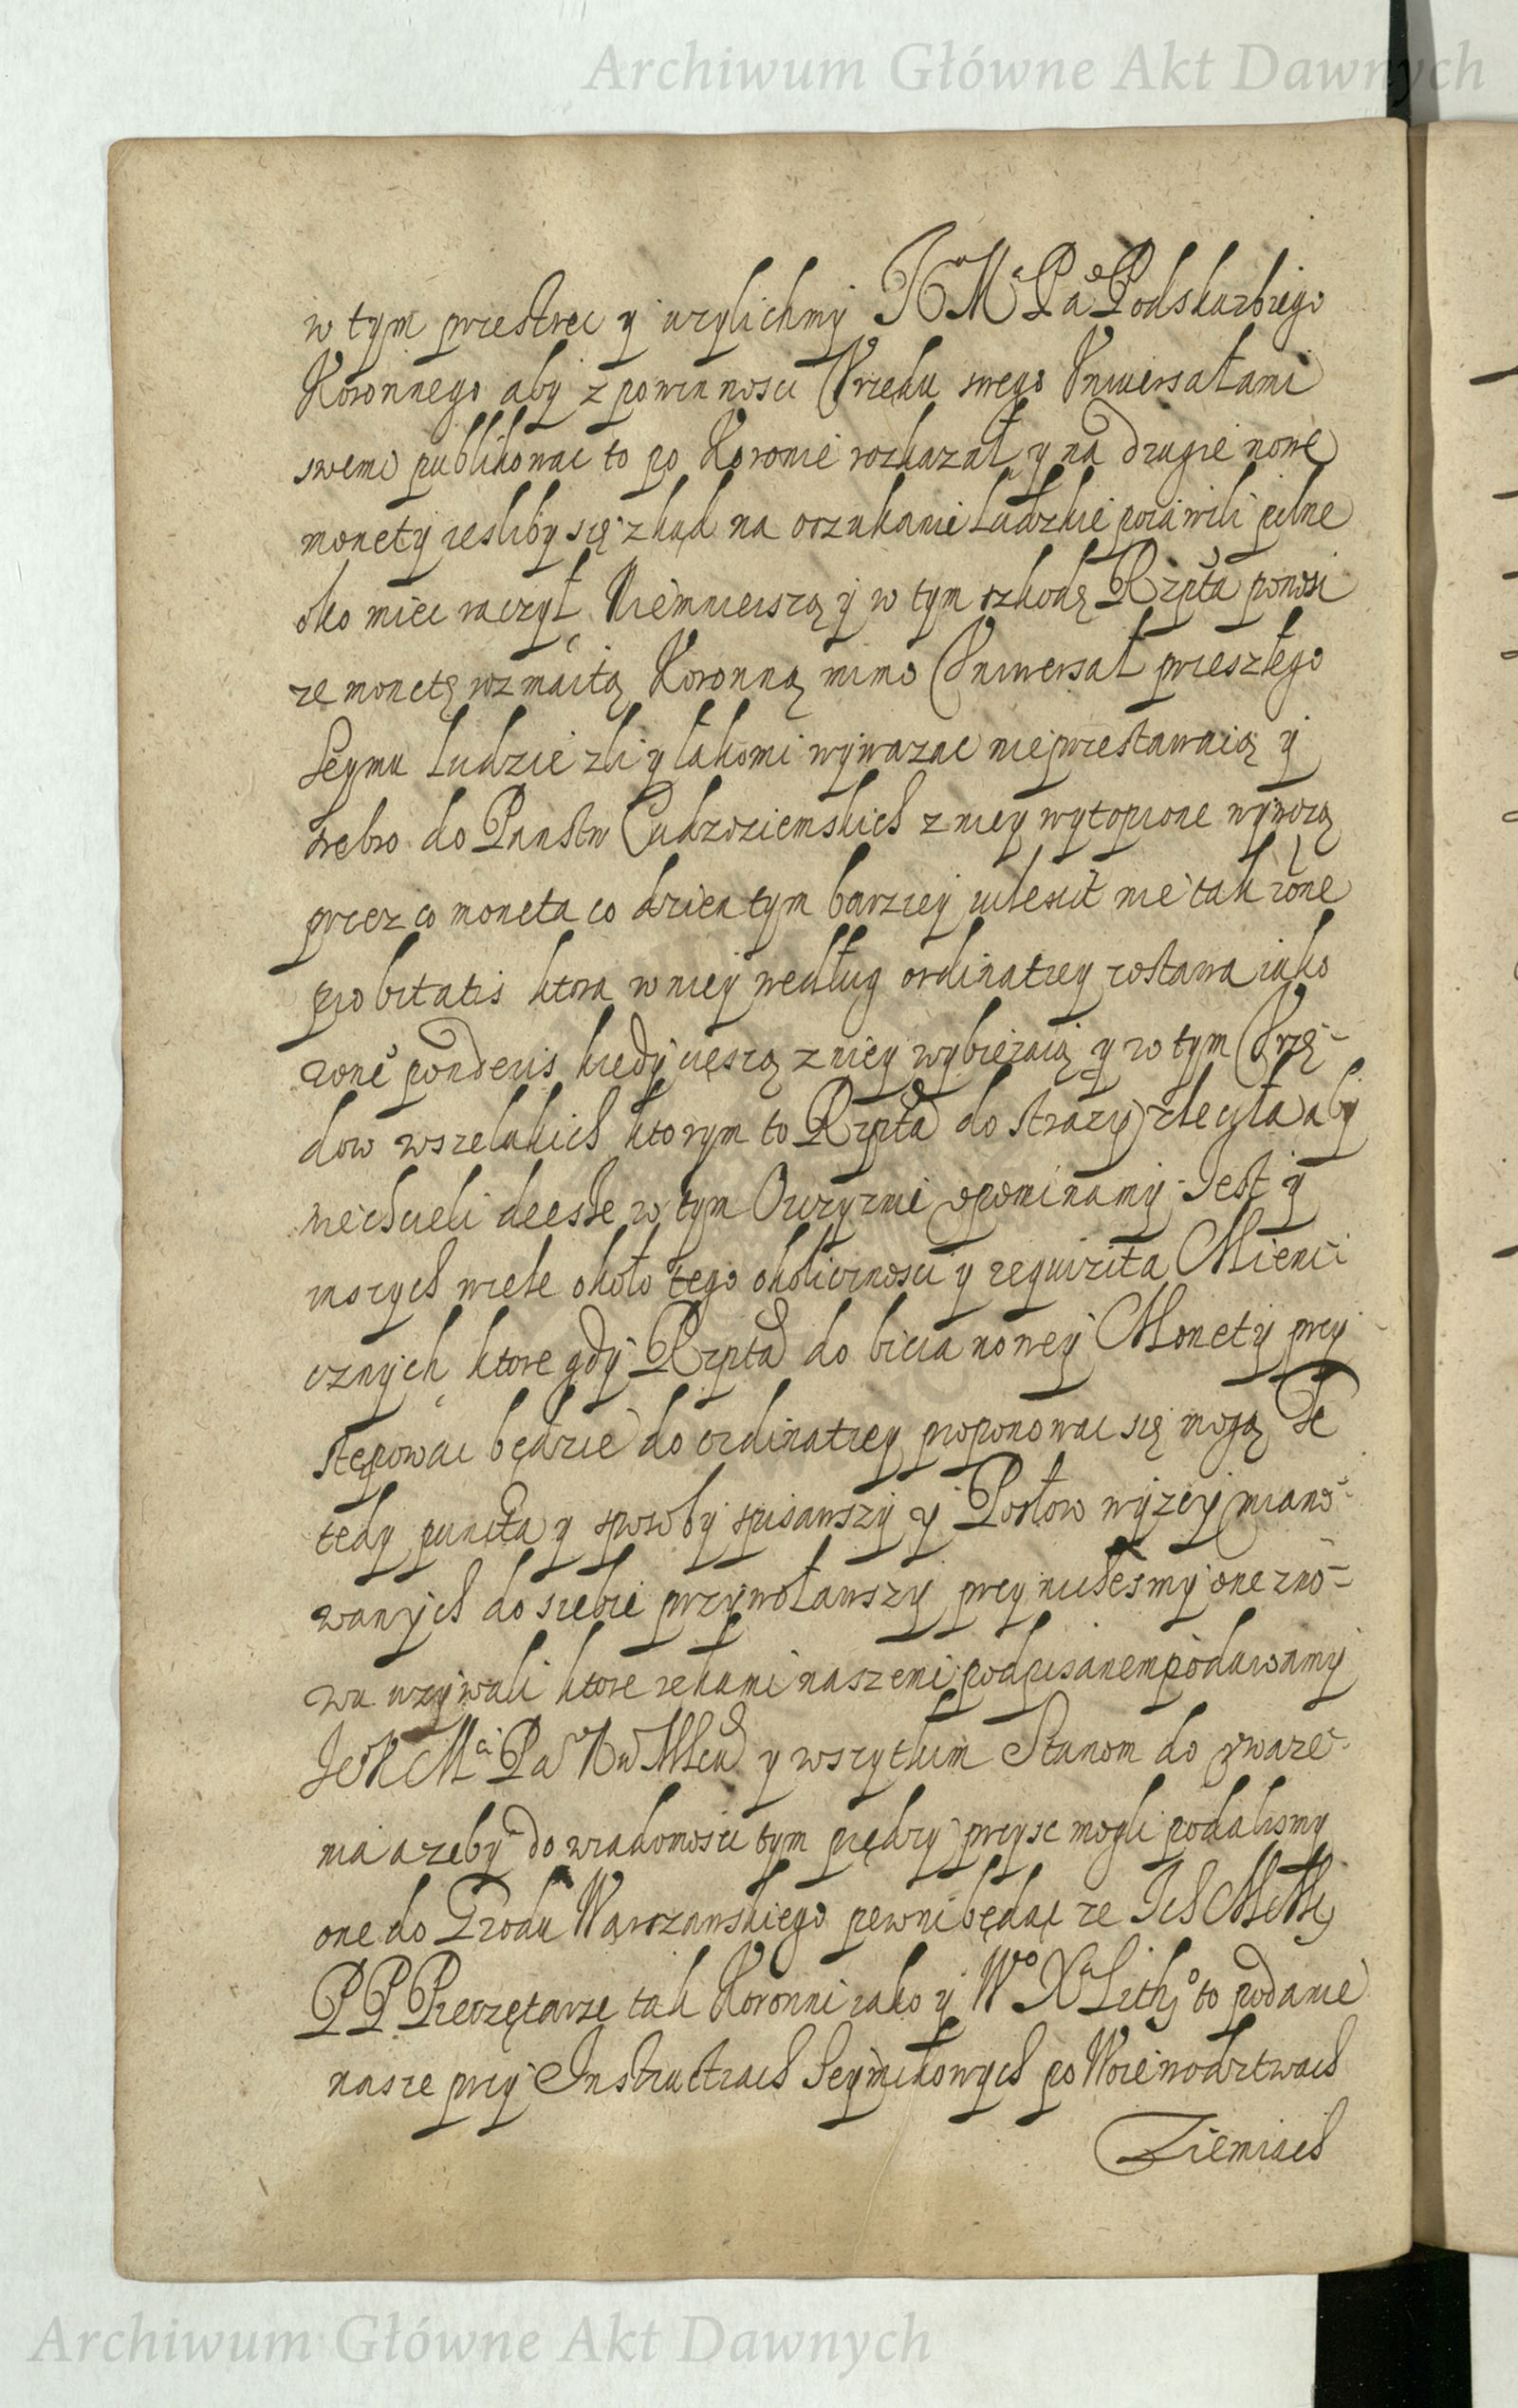 Archiwum Główne Akt Dawnych
w tym przestrec y uzylichmy JKMCi Pa Podskarbiego
Koronnego aby z powinnosci Vrzędu swego Vniwersałami
swemi publikowac to po Koronie rozkazał y na drugie nowe
monety iesliby się zkąd na oszukanie Ludzkie poiawili pilne
oko miec raczył Niemnieiszą y w tym szkodę Rzpta ponosi
ze monetę rozmaitą Koronną mimo Vniwersał przeszłego
Seymu Ludzie zli y łakomi wywazac nieprzestawaią y
srebro do Panstw Cudzoziemskich z niey wytopione wywozą
przez co moneta co dzien tym barziey vilescit nie tak róne
probitatis ktora w niey według ordinatiey zostawa iako
rone ponderis kiedy cięszą z niey wybieraią y w tym Vrzę-
dow wszelakich ktorym to Rzpta do strazy zleciła aby
niechcieli deesse w tym Oyczyznie vpominamy Jest y
inszych wiele około tego okolicznosci y requizita Mienni
cznych ktore gdy Rzpta do bicia nowey Monety przy
stępowac będzie do ordinatiey proponowac się mogą Te
tedy puncta y sposoby spisawszy y Posłow wyzey miano-
wanych do siebie przywoławszy przy nichesmy one zno-
wu uzywali ktore rękami naszemi podpisanem podawamy
JeoKMci Pa Nu Mscu y wszytkim Stanom do vwaze-
nia a zeby do wiadomosci tym prędzy przysc mogli podalismy
one do Grodu Warszawskiego pewni będąc ze Ich MMci
PP Pieczętarze tak Koronni iako y Wo Xa Litho to podanie
nasze przy Instructiach Seymikowych po Woiewodztwach
Ziemiach
Archiwum Główne Akt Dawnych